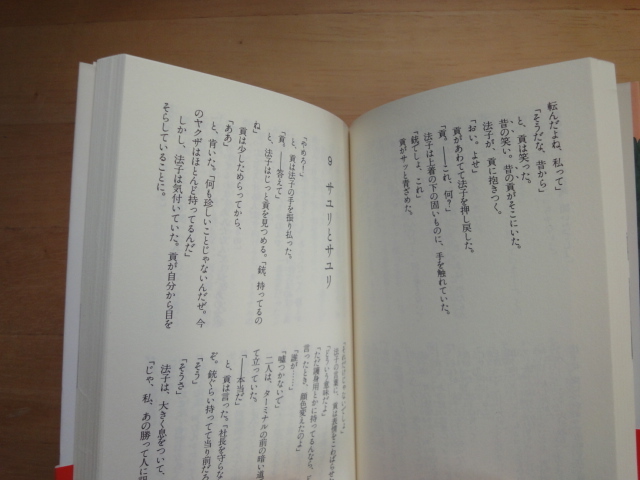 転んだよね、私って」
「そうだな、昔から」
と、貢は笑った。
昔の笑い。昔の貢がそこにいた。
法子が、貢に抱きつく。
「おい。よせ」
貢があわてて法子を押し戻した。
「貢。――これ、何？」
法子は上着の下の固いものに、手を触れていた。
「銃でしょ、これ」
貢がサッと青ざめた。
9 サユリとサユリ
「やめろ！」
と、貢は法子の手を振り払った。
「貢。――答えて」
と、法子はじっと貢を見つめる。「銃、持ってるの
ね」
貢は少しためらってから、
「ああ」
と、肯いた。「何も珍しいことじゃないんだぜ。今
のヤクザはほとんど持ってるんだ」
しかし、法子は気付いていた。貢が自分から目を
そらしていることに。
「どういう意味だよ」
「ただ護身用とかに持ってるんなら、
言ったとき、顔色変えたのよ」
「誰が……」
「嘘つかないで」
二人は、ターミナルの前の暗い道
て立っていた。
「――本当だ」
と、貢は言った。「社長を守らな
ぞ。銃ぐらい持ってて当り前だろ
「そう」
「そうさ」
法子は、大きく息をついて、
「じゃ、私、あの勝って人に